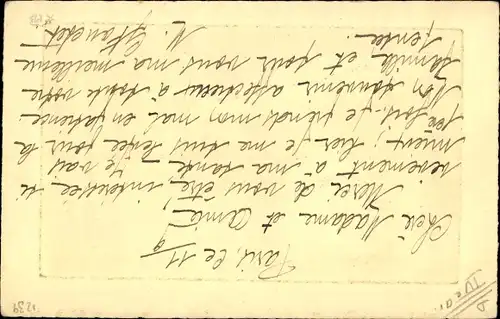 Paris, le 11/9
Chère Madame et Amie
Merci de vous être intéressée si
vivement à ma santé. Je vais
mieux ; hier je me suis levée pour la
1ère fois. Je prends mon mal en patience
Mon souvenir affectueux à toute votre
famille et pour vous ma meilleure
pensée.
1239